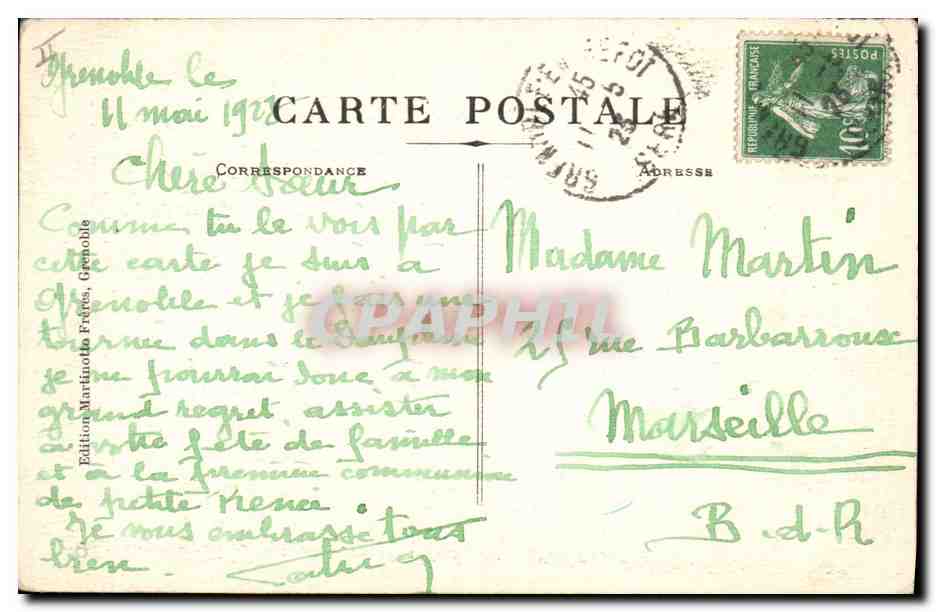 Grenoble le
11 mai 192
CARTE POSTALE
CORRESPONDANCE
ADRESSE
REPUBLIQUE FRANÇAISE
POSTES
10c
Chère Sœur
Comme tu le vois par
cette carte je suis à
Grenoble et je fais une
tournée dans le Dauphiné
je ne pourrai donc à mon
grand regret assister
à votre fête de famille
et à la première communion
de petite Renée.
Je vous embrasse tous
bien.
Madame Martin
25 rue Barbarroux
Marseille
B-d-R
Edition Martinotto Frères, Grenoble
CPAPHIL